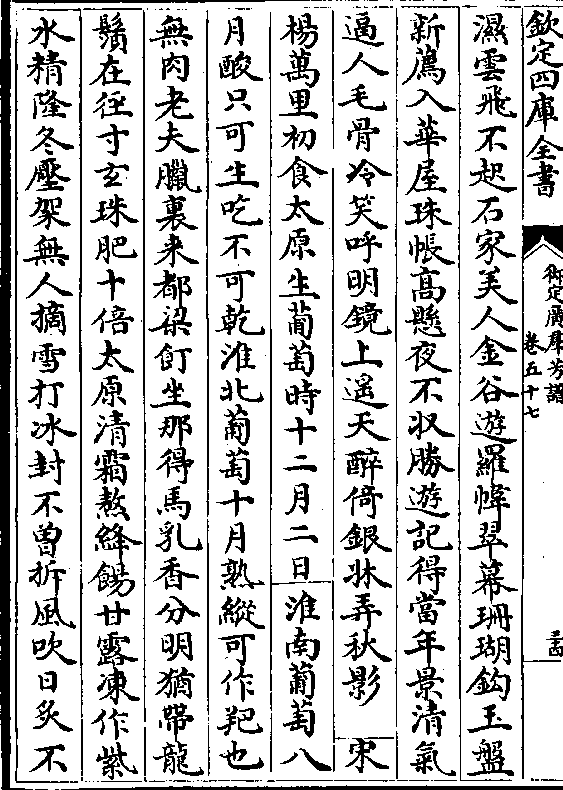 欽定四庫全書
御定廣羣芳譜
卷五十七
濕雲飛不起石家美人金谷遊羅幃翠幕珊瑚鈎玉盤
新薦入華屋珠帳高懸夜不収勝遊記得當年景清氣
逼人毛骨冷笑呼明鏡上遙天醉倚銀牀弄秋影 宋
楊萬里初食太原生葡萄時十二月二日 淮南葡萄八
月酸只可生吃不可乾淮北葡萄十月熟縱可作羓也
無肉老夫臘裏来都梁飣坐那得馬乳香分明猶帶龍
鬚在徑寸玄珠肥十倍太原清霜熬絳餳甘露凍作紫
水精隆冬壓架無人摘雪打冰封不曽拆風吹日炙不